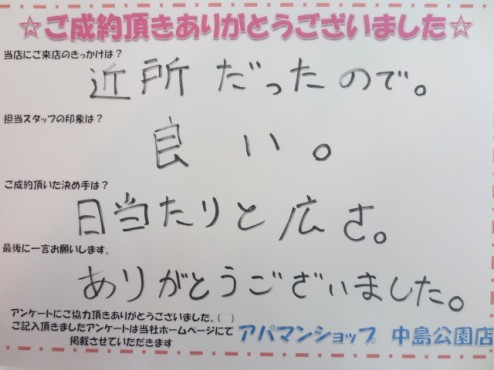 ☆ご成約頂きありがとうございました☆
当店にご来店のきっかけは？
近所だったので。
担当スタッフの印象は？
良い。
ご成約頂いた決め手は？
日当たりと広さ。
最後に一言お願いします。
ありがとうございました。
アンケートにご協力頂きありがとうございました。(__)
ご記入頂きましたアンケートは当社ホームページにて
掲載させていただきます
アパマンショップ 中島公園店